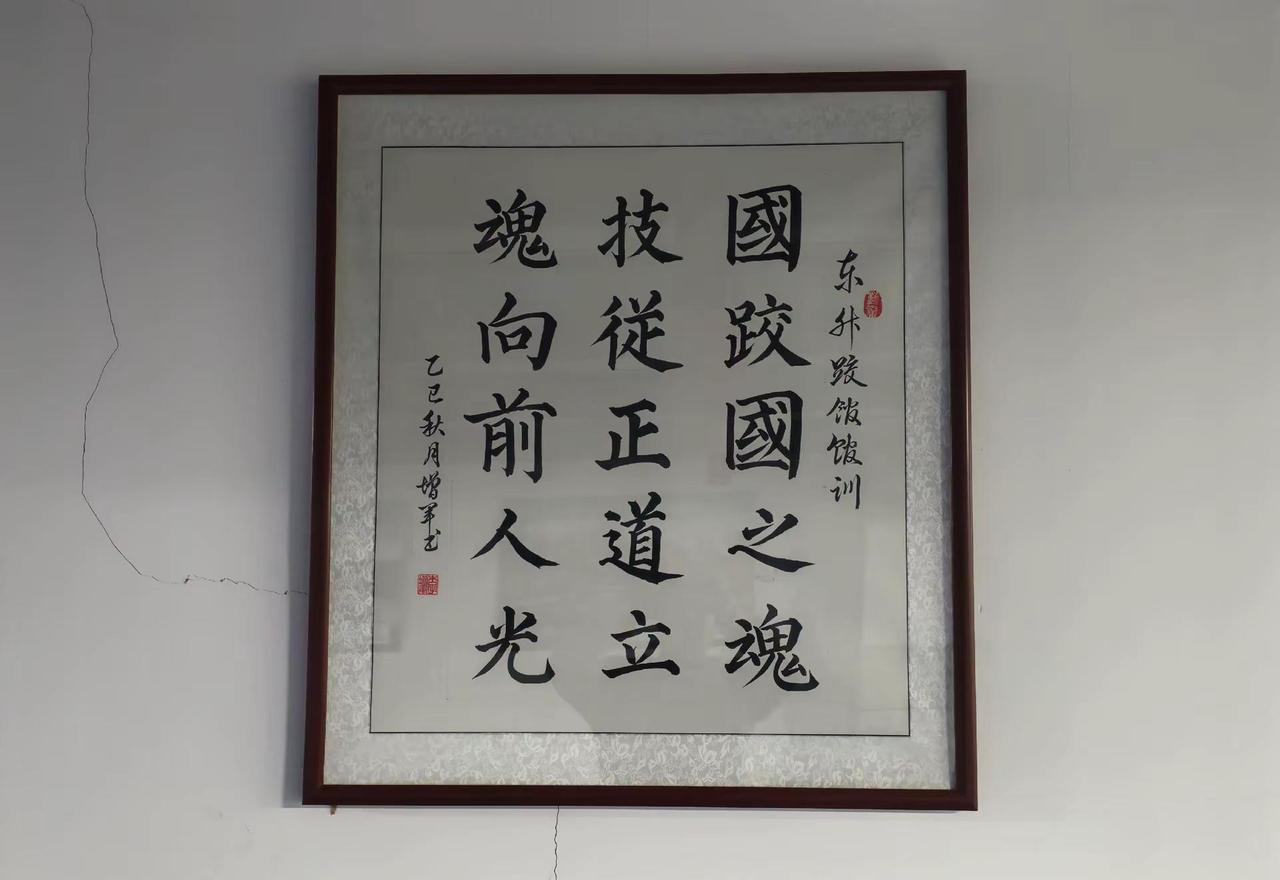 东升跤馆馆训
國跤國之魂
技從正道立
魂向前人光
乙巳秋月增军书